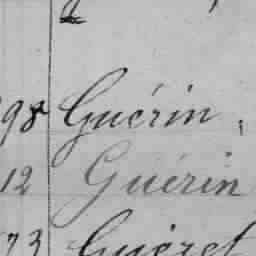 98 Guérin,
12 Guérin
73 Guéret